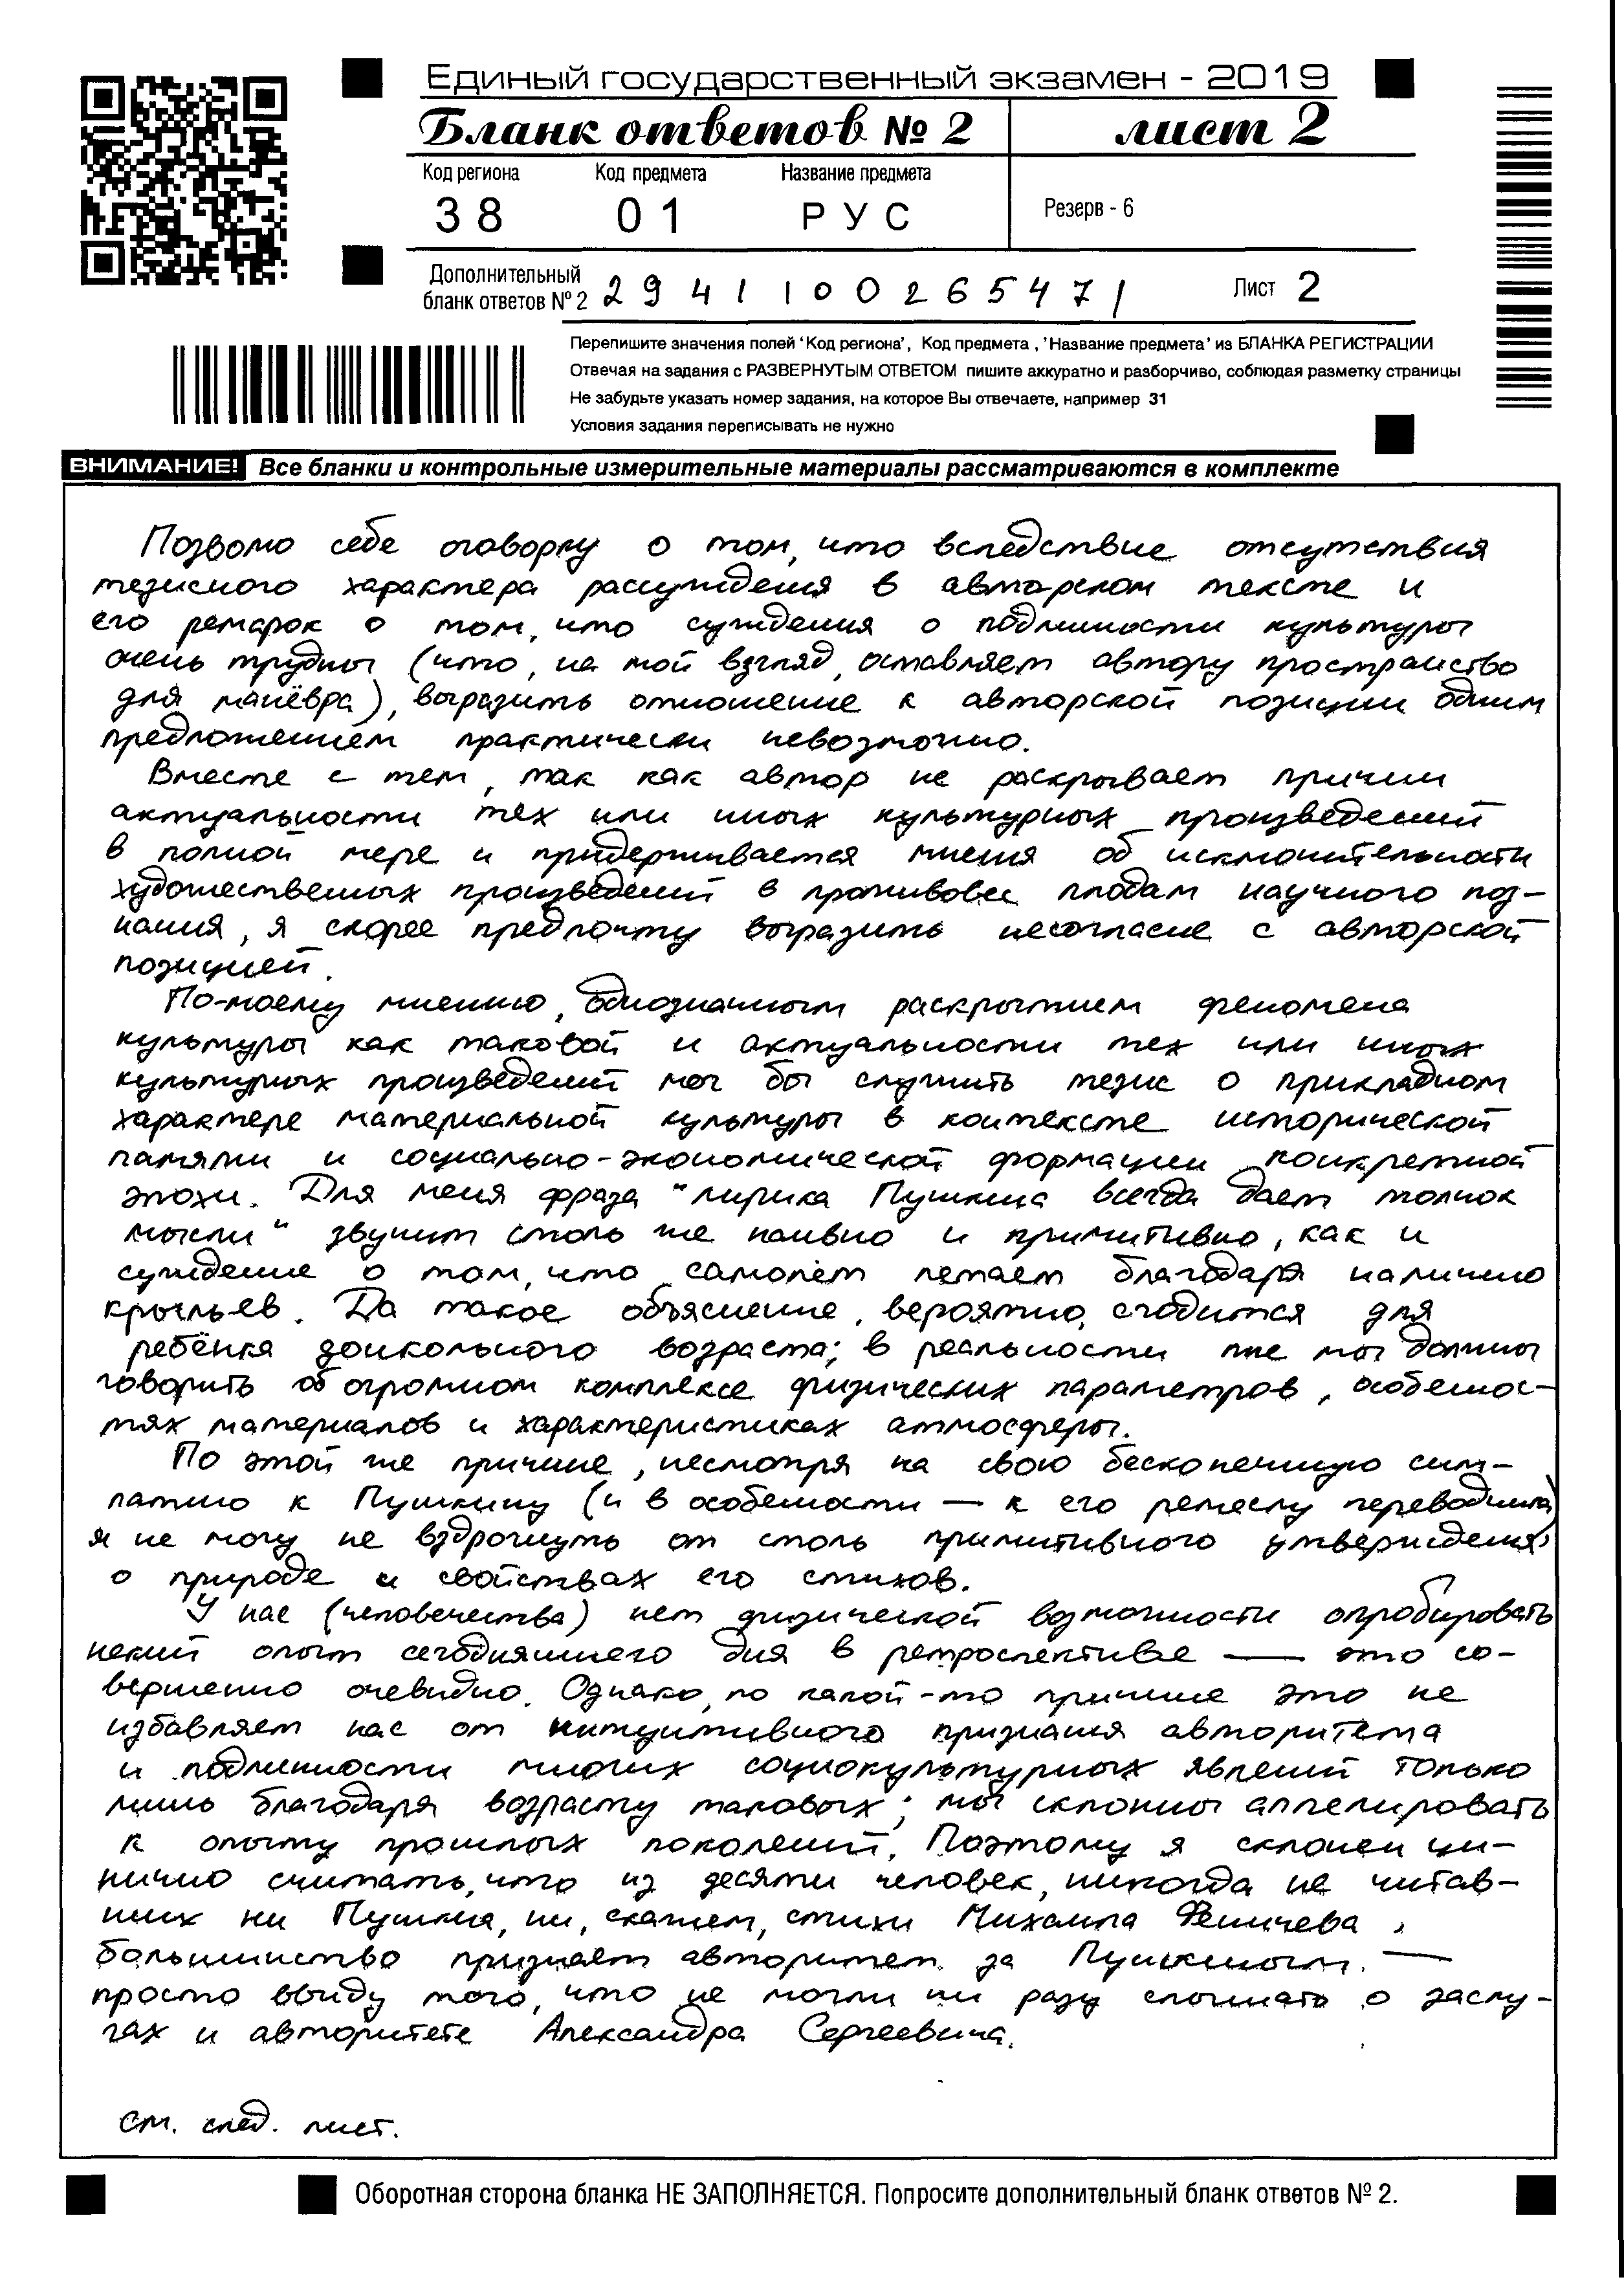 Единый государственный экзамен - 2019
Бланк ответов № 2
лист 2
Код региона
Код предмета
Название предмета
38
01
РУС
Резерв - 6
Дополнительный
бланк ответов № 2
2941100265471
Лист 2
Перепишите значения полей 'Код региона', Код предмета , 'Название предмета' из БЛАНКА РЕГИСТРАЦИИ
Отвечая на задания с РАЗВЕРНУТЫМ ОТВЕТОМ пишите аккуратно и разборчиво, соблюдая разметку страницы
Не забудьте указать номер задания, на которое Вы отвечаете, например 31
Условия задания переписывать не нужно
ВНИМАНИЕ! Все бланки и контрольные измерительные материалы рассматриваются в комплекте
Позволю себе оговорку о том, что вследствие отсутствия
тезисного характера рассуждения в авторском тексте и
его ремарок о том, что суждения о подлинности культуры
очень трудны (что, на мой взгляд, оставляет автору пространство
для манёвра), выразить отношение к авторской позиции одним
предложением практически невозможно.
Вместе с тем, так как автор не раскрывает причин
актуальности тех или иных культурных произведений
в полной мере и придерживается мнения об исключительности
художественных произведений в противовес плодам научного поз-
нания, я скорее предпочту выразить несогласие с авторской
позицией.
По-моему мнению, однозначным раскрытием феномена
культуры как таковой и актуальности тех или иных
культурных произведений мог бы служить тезис о прикладном
характере материальной культуры в контексте исторической
памяти и социально-экономической формации конкретной
эпохи. Для меня фраза "лирика Пушкина всегда дает толчок
мысли" звучит столь же наивно и примитивно, как и
суждение о том, что самолёт летает благодаря наличию
крыльев. Да такое объяснение, вероятно, сгодится для
ребёнка дошкольного возраста; в реальности же мы должны
говорить об огромном комплексе физических параметров, особеннос-
тях материалов и характеристиках атмосферы.
По этой же причине, несмотря на свою бесконечную сим-
патию к Пушкину (и в особенности — к его ремеслу переводчика)
я не могу не вздрогнуть от столь примитивного утверждения
о природе и свойствах его стихов.
У нас (человечества) нет физической возможности опробировать
некий опыт сегодняшнего дня в ретроспективе — это со-
вершенно очевидно. Однако, по какой-то причине это не
избавляет нас от интуитивного признания авторитета
и подлинности многих социокультурных явлений только
лишь благодаря возрасту таковых; мы склонны аппелировать
к опыту прошлых поколений. Поэтому я склонен ци-
нично считать, что из десяти человек, никогда не читав-
ших ни Пушкина, ни, скажем, стихи Михаила Феничева,
большинство признает авторитет за Пушкиным —
просто ввиду того, что не могли ни разу слышать о заслу-
гах и авторитете Александра Сергеевича.
См. след. лист.
Оборотная сторона бланка НЕ ЗАПОЛНЯЕТСЯ. Попросите дополнительный бланк ответов № 2.